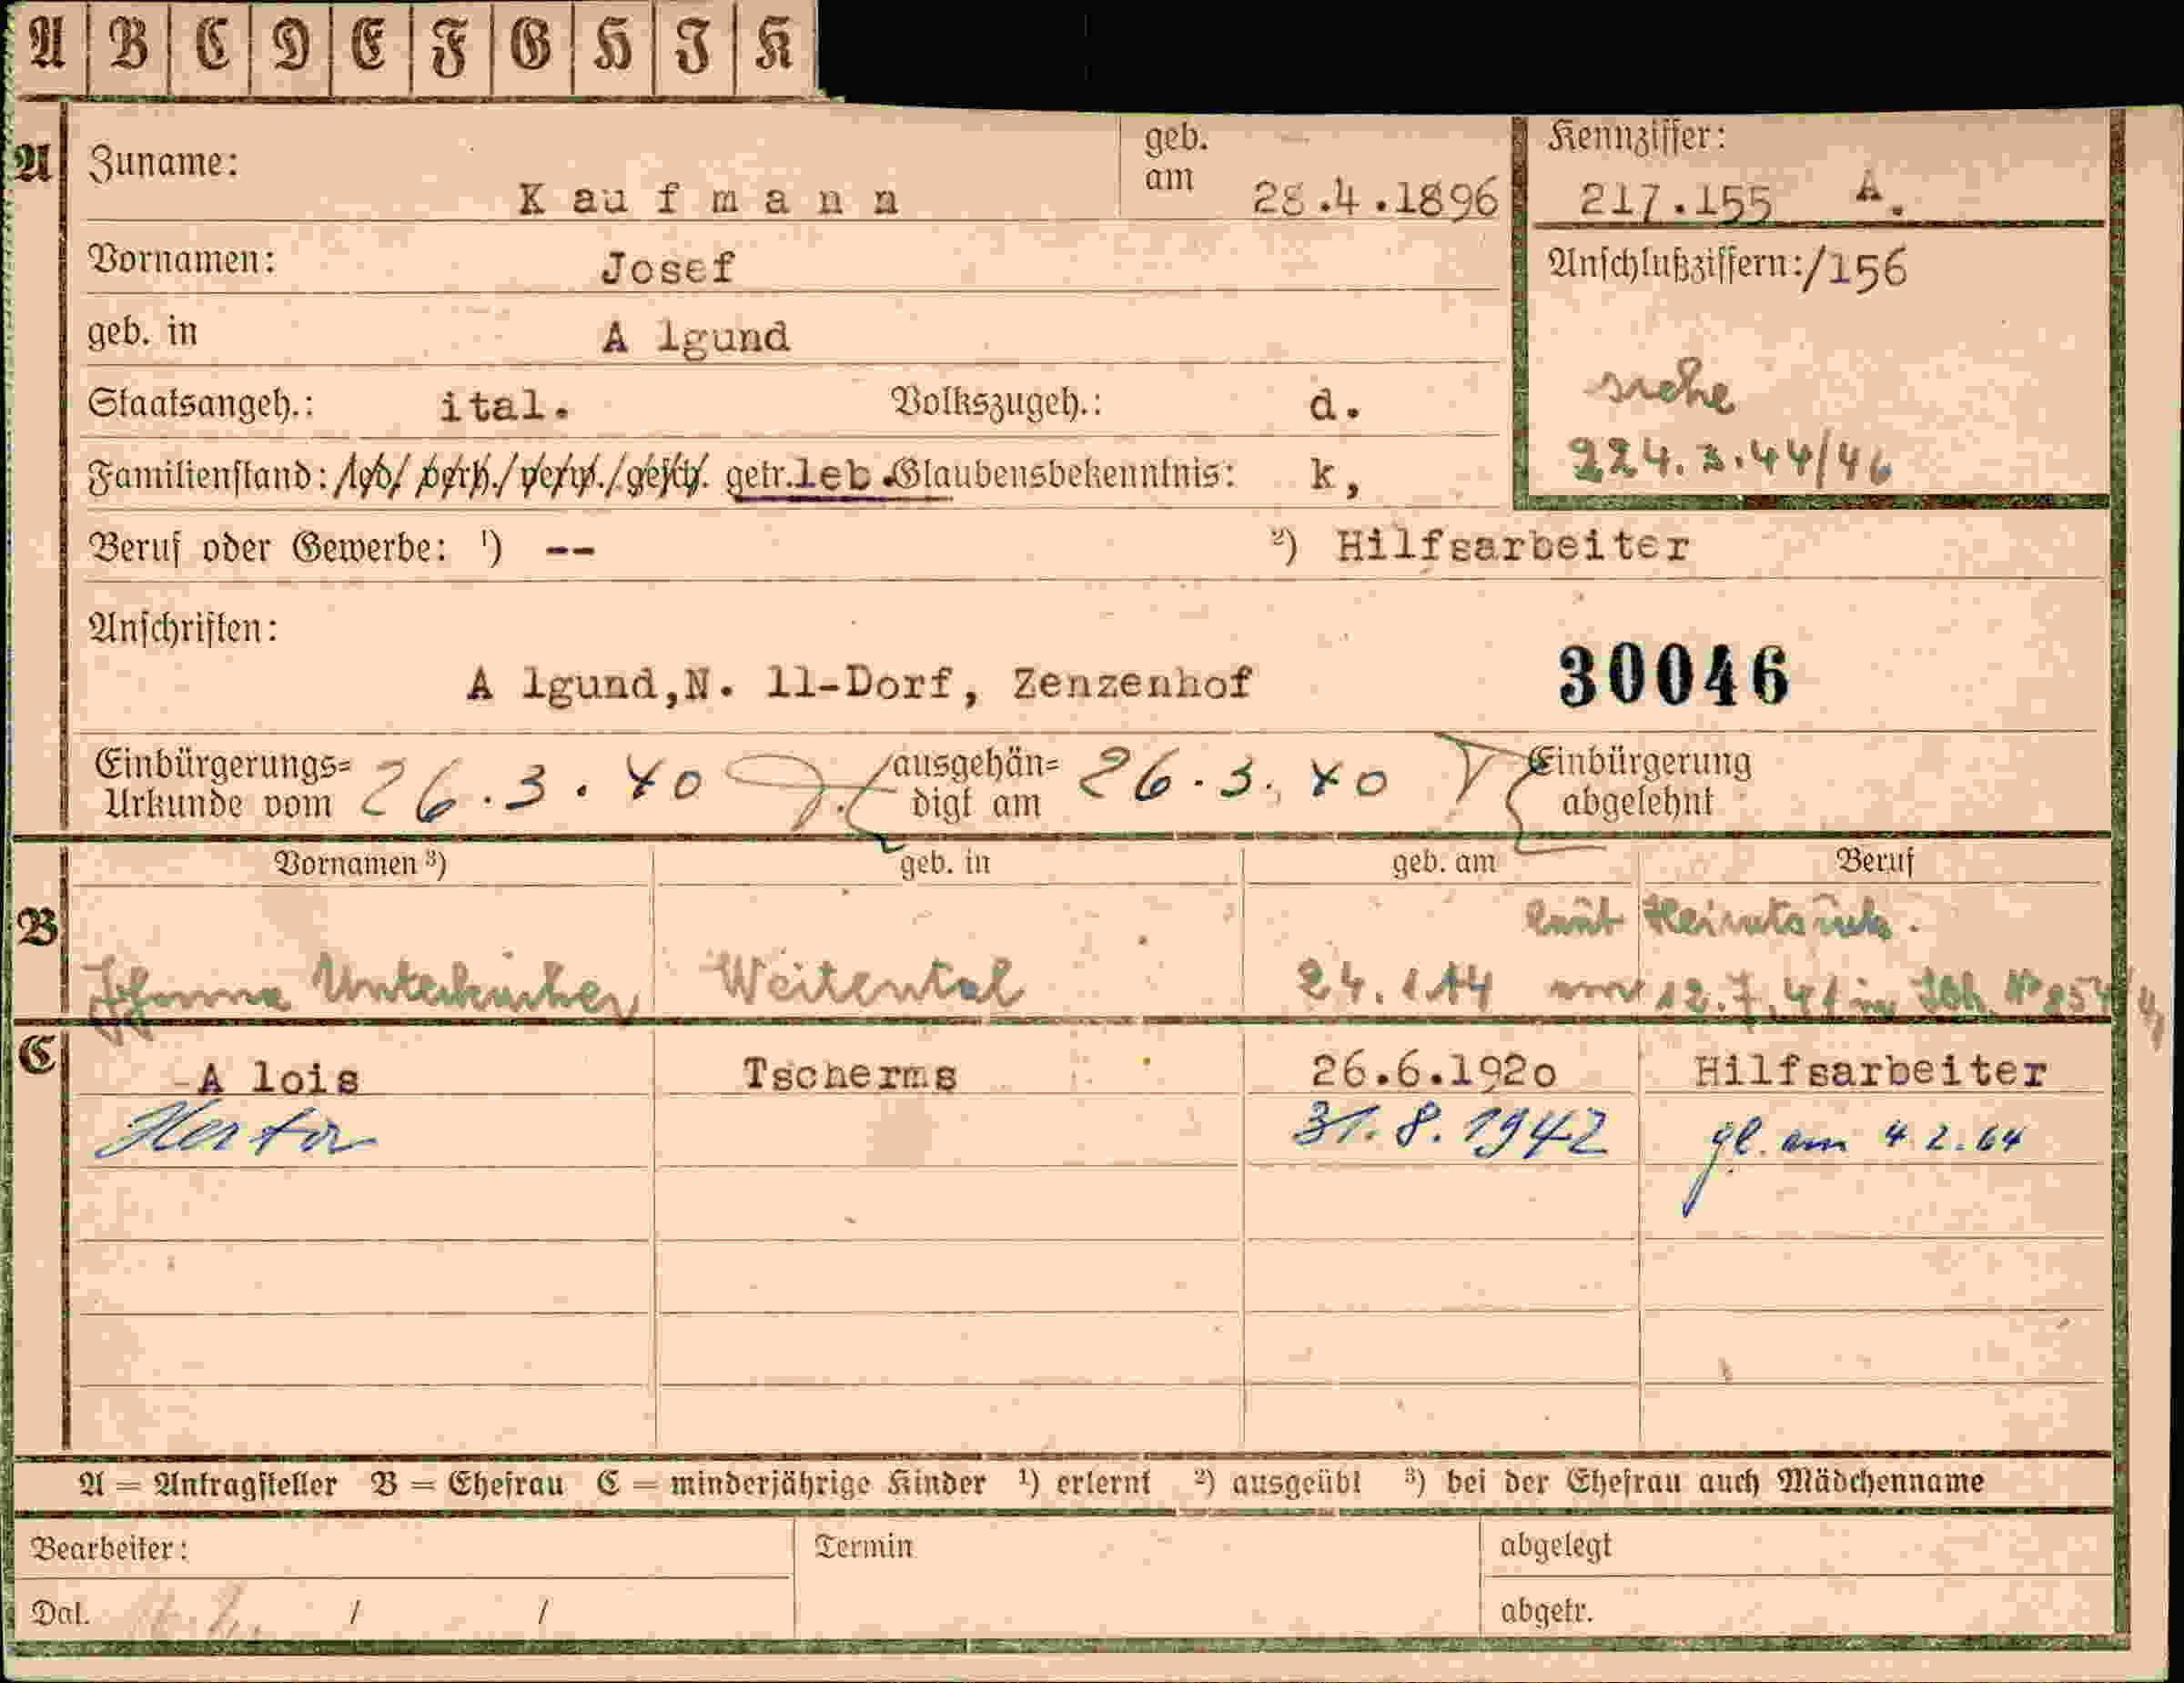 A B C D E F G H J K
A Zuname: K au f m a n n geb. am 28.4.1896 Kennziffer: 217.155 A.
Vornamen: Josef Anschlußziffern:/156
geb. in A lgund
Staatsangeh.: ital. Volkszugeh.: d. siehe
224.3.44/46
Familienstand: /led/ verh./verw./gesch. getr.leb. Glaubensbekenntnis: k,
Beruf oder Gewerbe: ¹) -- ²) Hilfsarbeiter
Anschriften:
A lgund,N. 11-Dorf, Zenzenhof 30046
Einbürgerungs=Urkunde vom 26.3.40 ausgehän=digt am 26.3.40 Einbürgerung abgelehnt
B Vornamen ³) geb. in geb. am Beruf
laut
Weitental 24.1.14 vom 12.7.41 in
C -A lois Tscherms 26.6.1920 Hilfsarbeiter
Herta 31.8.1942 gl. am 4 2.64
A = Antragsteller B = Ehefrau C = minderjährige Kinder ¹) erlernt ²) ausgeübt ³) bei der Ehefrau auch Mädchenname
Bearbeiter: Termin abgelegt
Dat. / / abgetr.